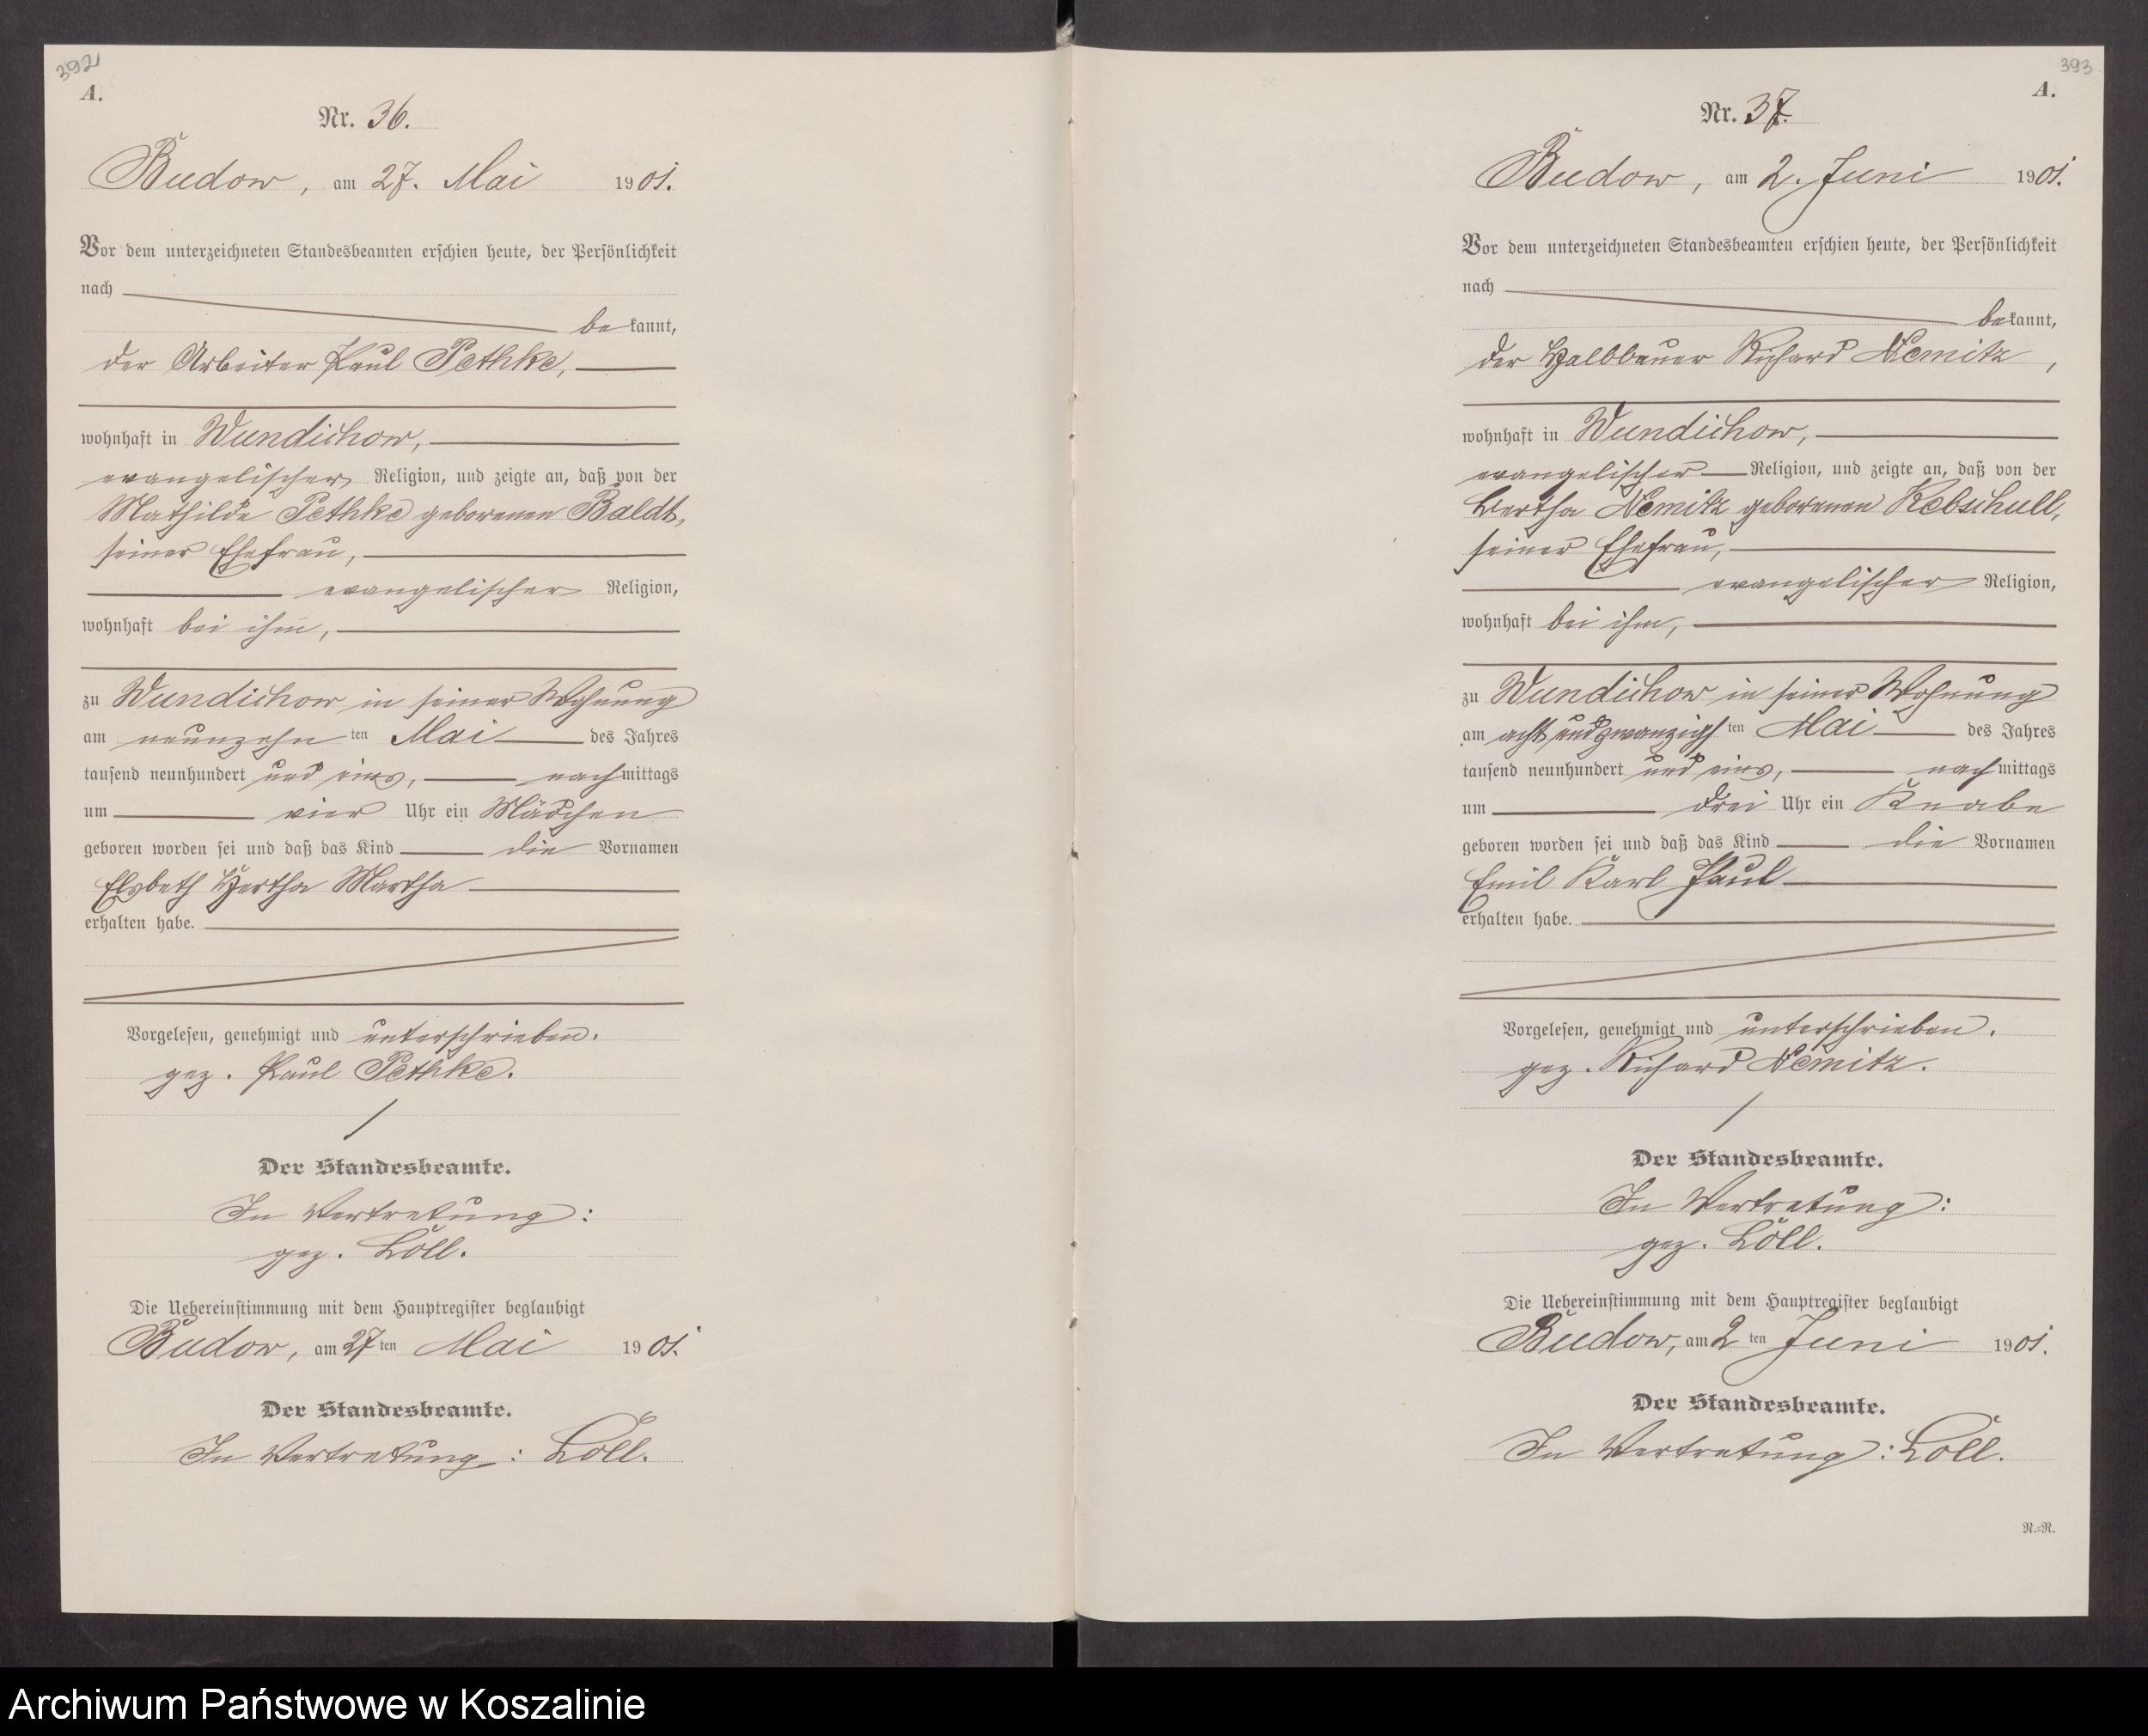 392
A.
Nr. 36.
Budow, am 27. Mai 1901.
Vor dem unterzeichneten Standesbeamten erschien heute, der Persönlichkeit
nach
bekannt,
der Arbeiter Paul Pethke,
wohnhaft in Wundichow,
evangelischer Religion, und zeigte an, daß von der
Mathilde Pethke geborenen Baldt,
seiner Ehefrau,
evangelischer Religion,
wohnhaft bei ihm,
zu Wundichow in seiner Wohnung
am neunzehn ten Mai des Jahres
tausend neunhundert und eins, nachmittags
um vier Uhr ein Mädchen
geboren worden sei und daß das Kind die Vornamen
Elsbeth Hertha Martha
erhalten habe.
Vorgelesen, genehmigt und unterschrieben.
gez. Paul Pethke.
Der Standesbeamte.
In Vertretung:
gez. Löll.
Die Uebereinstimmung mit dem Hauptregister beglaubigt
Budow, am 27ten Mai 1901.
Der Standesbeamte.
In Vertretung: Löll.
393
A.
Nr. 37.
Budow, am 2. Juni 1901.
Vor dem unterzeichneten Standesbeamten erschien heute, der Persönlichkeit
nach
bekannt,
der Halbbauer Richard Nemitz,
wohnhaft in Wundichow,
evangelischer Religion, und zeigte an, daß von der
Bertha Nemitz geborenen Rebschull,
seiner Ehefrau,
evangelischer Religion,
wohnhaft bei ihm,
zu Wundichow in seiner Wohnung
am acht und zwanzigsten Mai des Jahres
tausend neunhundert und eins, nachmittags
um drei Uhr ein Knabe
geboren worden sei und daß das Kind die Vornamen
Emil Karl Paul
erhalten habe.
Vorgelesen, genehmigt und unterschrieben.
gez. Richard Nemitz.
Der Standesbeamte.
In Vertretung:
gez. Löll.
Die Uebereinstimmung mit dem Hauptregister beglaubigt
Budow, am 2 ten Juni 1901.
Der Standesbeamte.
In Vertretung: Löll.
N.=N.
Archiwum Państwowe w Koszalinie